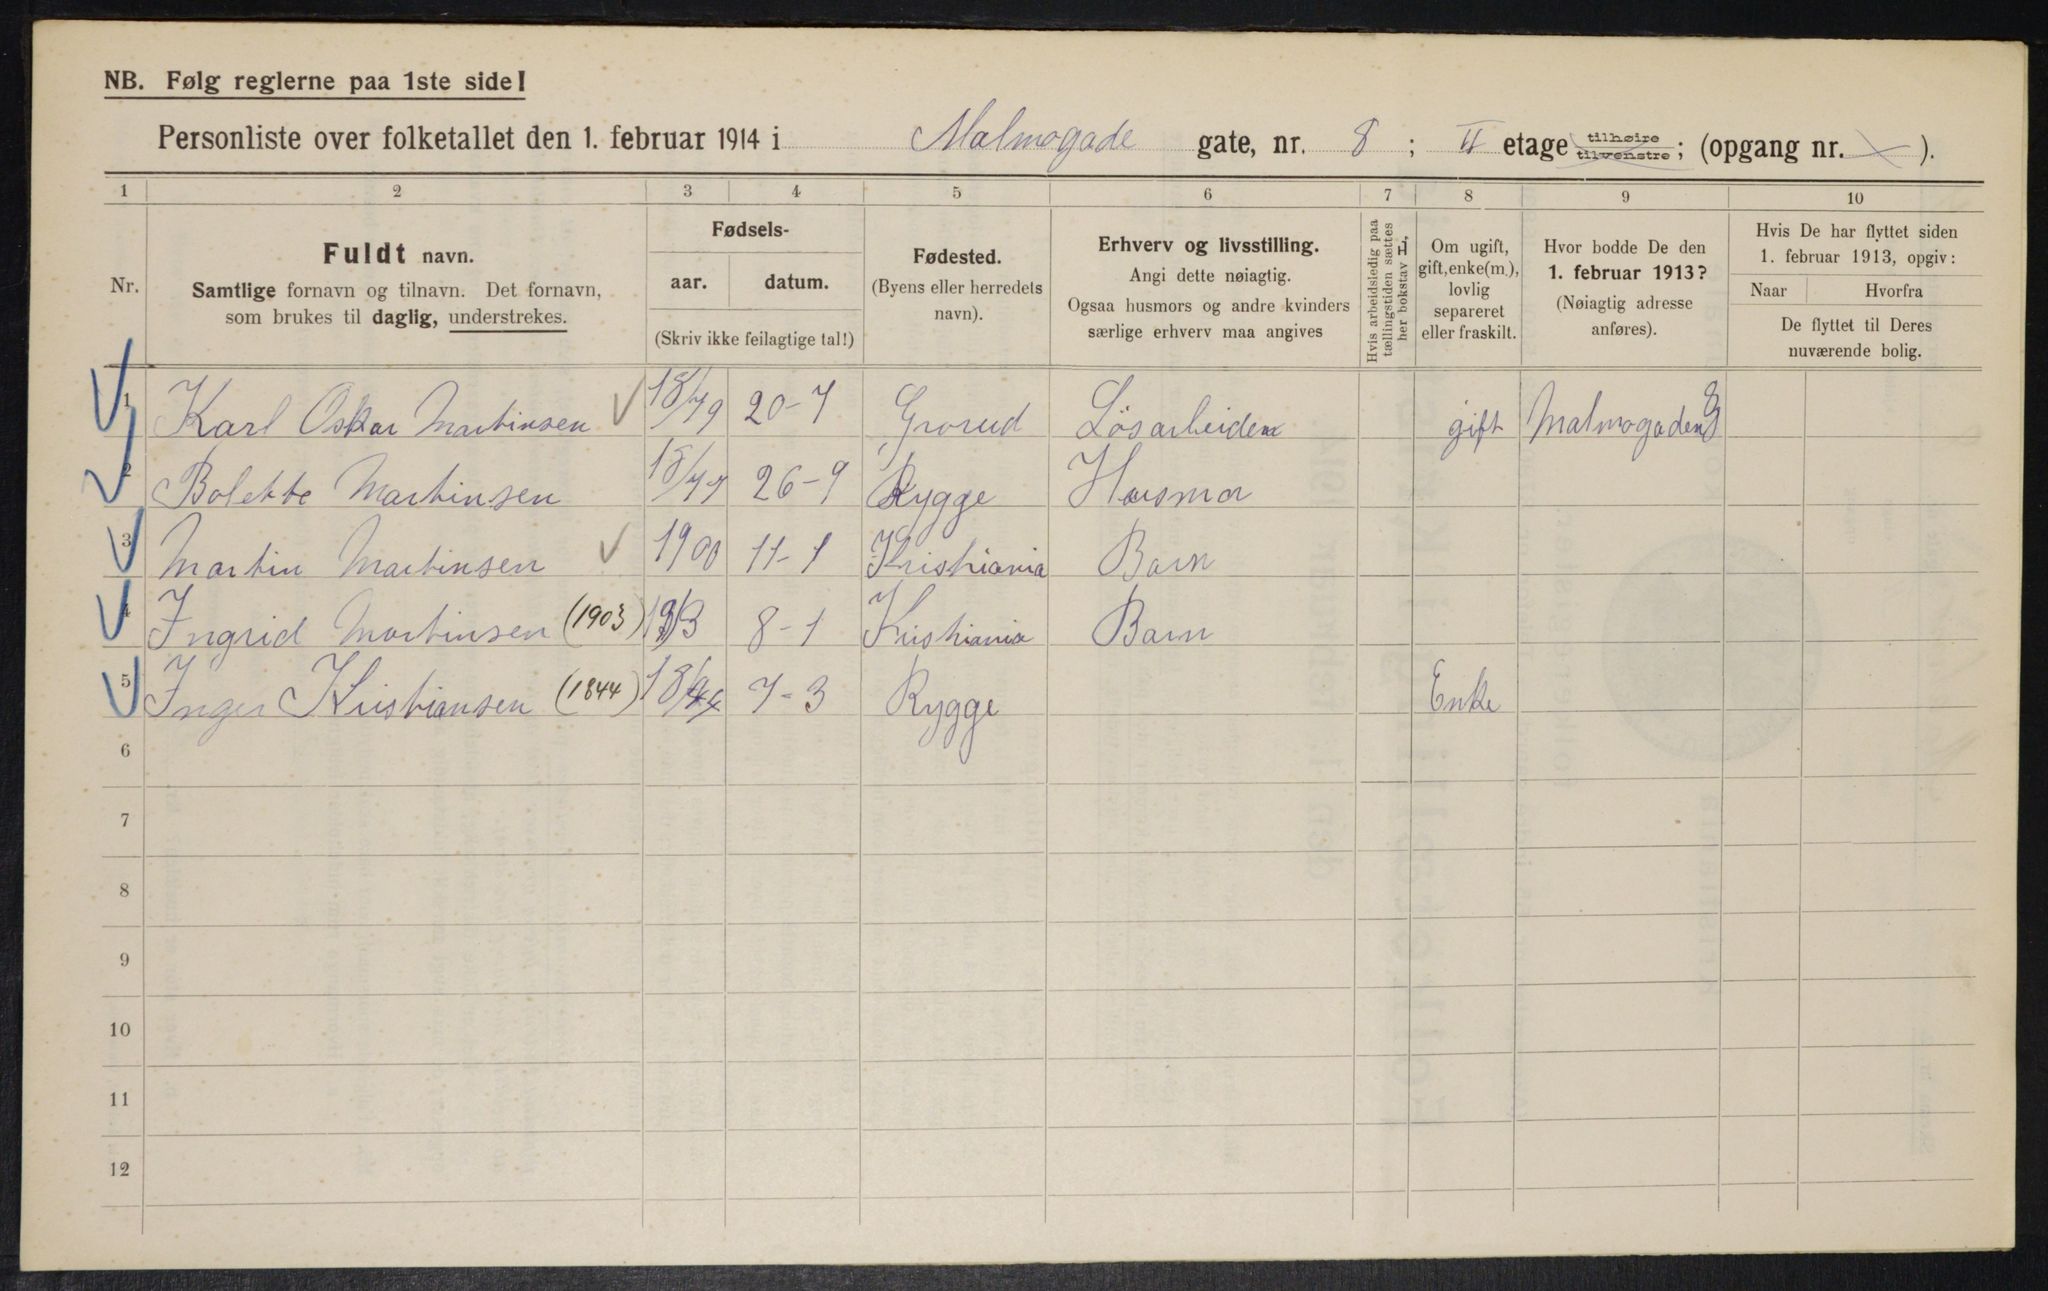 NB. Følg reglerne paa 1ste side!
Personliste over folketallet den 1. februar 1914 i Malmogade gate, nr. 8; II etage tilhøire tilvenstre; (opgang nr. ).
1 2 3 4 5 6 7 8 9 10
Nr.
Fuldt navn.
Samtlige fornavn og tilnavn. Det fornavn,
som brukes til daglig, understrekes.
Fødsels-
aar. datum.
(Skriv ikke feilagtige tal!)
Fødested.
(Byens eller herredets
navn).
Erhverv og livsstilling.
Angi dette nøiagtig.
Ogsaa husmors og andre kvinders
særlige erhverv maa angives
Hvis arbeidsledig paa
tællingstiden sættes
her bokstav L,
Om ugift,
gift, enke(m.),
lovlig
separeret
eller fraskilt.
Hvor bodde De den
1. februar 1913?
(Nøiagtig adresse
anføres).
Hvis De har flyttet siden
1. februar 1913, opgiv:
Naar Hvorfra
De flyttet til Deres
nuværende bolig.
1 Karl Oskar Martinsen 18/79 20-7 Grorud Løsarbeider gift Malmogaden 8
2 Bolette Martinsen 18/77 26-9 Rygge Husmor
3 Martin Martinsen 1900 11-1 Kristiania Barn
4 Ingrid Martinsen (1903) 8-1 Kristiania Barn
5 Inger Kristiansen (1844) 18/44 7-3 Rygge Enke
6
7
8
9
10
11
12